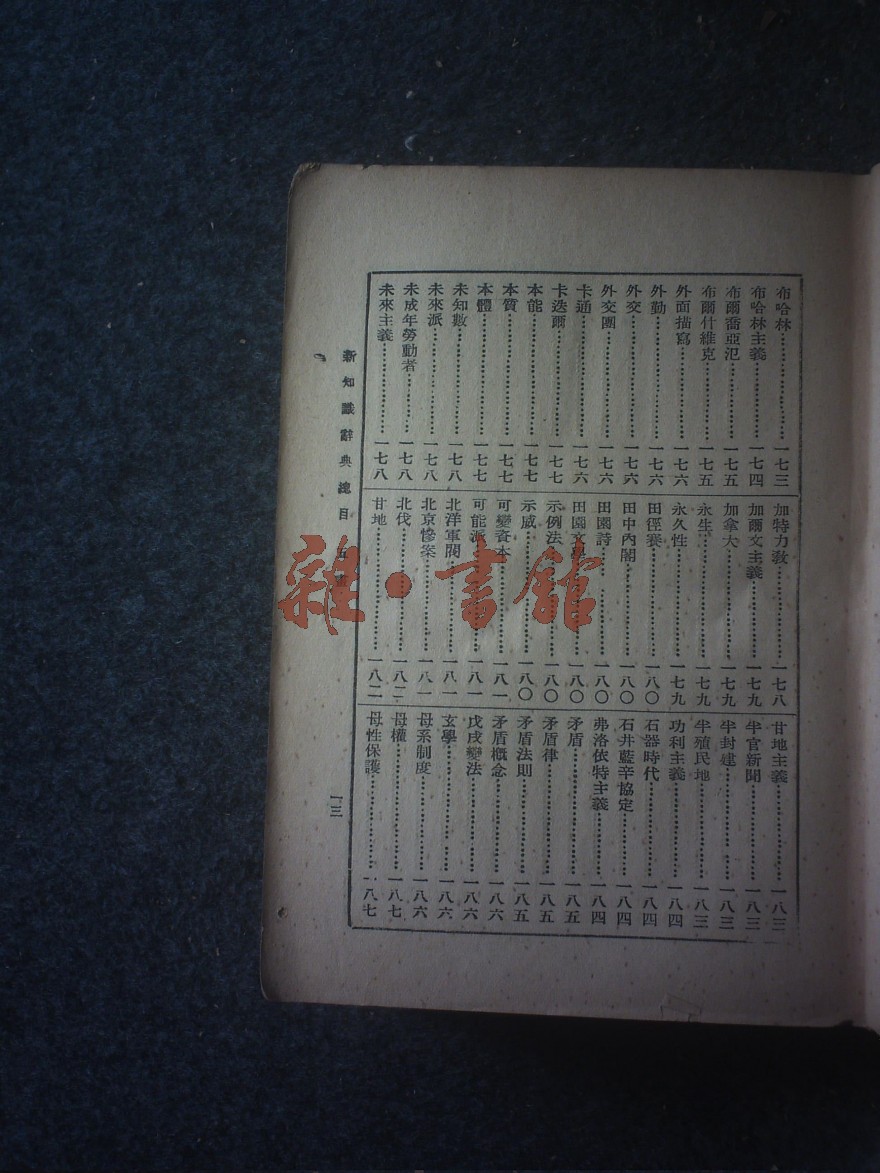 布哈林……………一七三
布哈林主義……………一七四
布爾喬亞氾……………一七五
布爾什維克……………一七五
外面描寫……………一七六
外勤……………一七六
外交……………一七六
外交團……………一七六
卡通……………一七六
卡迭爾……………一七七
本能……………一七七
本質……………一七七
本體……………一七七
未知數……………一七八
未來派……………一七八
未成年勞動者……………一七八
未來主義……………一七八
加特力教……………一七八
加爾文主義……………一七九
加拿大……………一七九
永生……………一七九
永久性……………一七九
田徑賽……………一八〇
田中內閣……………一八〇
田園詩……………一八〇
田園文學……………一八〇
示例法……………一八〇
示威……………一八〇
可變資本……………一八一
可能派……………一八一
北洋軍閥……………一八一
北京慘案……………一八一
北伐……………一八二
甘地……………一八二
甘地主義……………一八三
半官新聞……………一八三
半封建……………一八三
半殖民地……………一八三
功利主義……………一八四
石器時代……………一八四
石井藍辛協定……………一八四
弗洛依特主義……………一八四
矛盾……………一八五
矛盾律……………一八五
矛盾法則……………一八五
矛盾概念……………一八六
戊戌變法……………一八六
玄學……………一八六
母系制度……………一八六
母權……………一八七
母性保護……………一八七
新知識辭典總目
一三
雜·書館